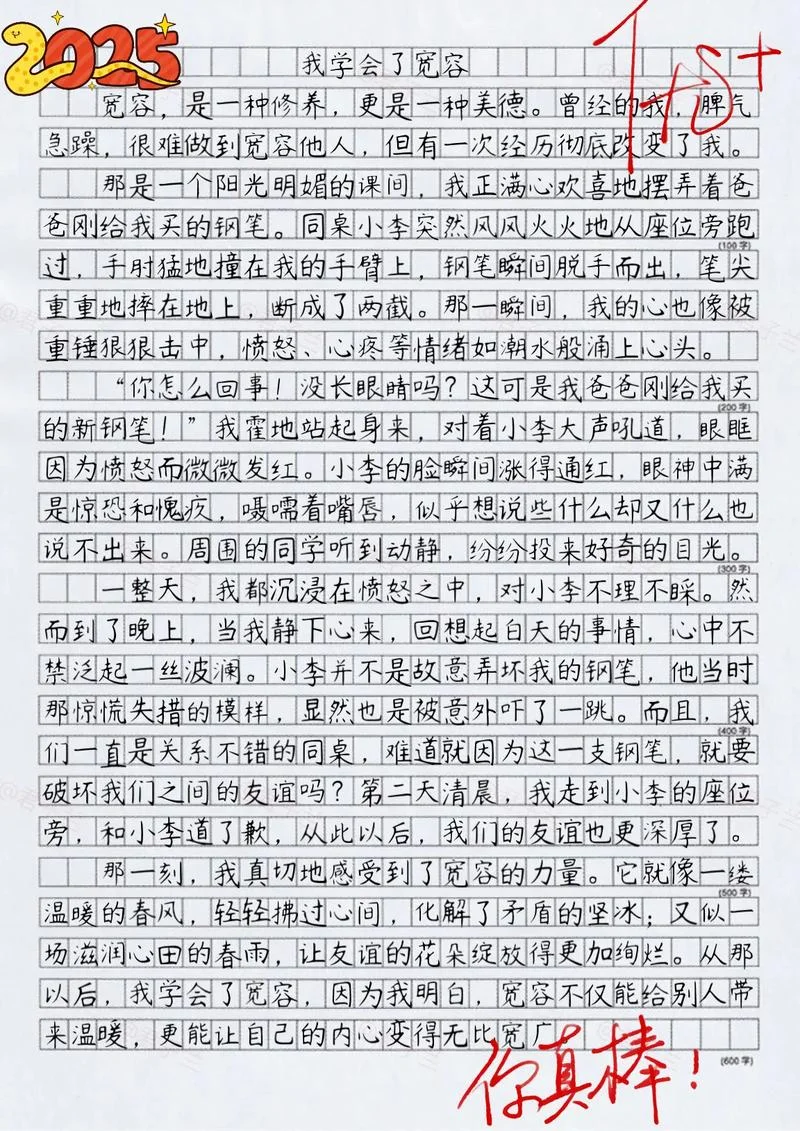 2025
优+
我学会了宽容
宽容，是一种修养，更是一种美德。曾经的我，脾气
急躁，很难做到宽容他人，但有一次经历彻底改变了我。
那是一个阳光明媚的课间，我正满心欢喜地摆弄着爸
爸刚给我买的钢笔。同桌小李突然风风火火地从座位旁跑
(100字)
过，手肘猛地撞在我的手臂上，钢笔瞬间脱手而出，笔尖
重重地摔在地上，断成了两截。那一瞬间，我的心也像被
重锤狠狠击中，愤怒、心疼等情绪如潮水般涌上心头。
“你怎么回事！没长眼睛吗？这可是我爸爸刚给我买
(200字)
的新钢笔！”我霍地站起身来，对着小李大声吼道，眼眶
因为愤怒而微微发红。小李的脸瞬间涨得通红，眼神中满
是惊恐和愧疚，嗫嚅着嘴唇，似乎想说些什么却又什么也
说不出来。周围的同学听到动静，纷纷投来好奇的目光。
(300字)
一整天，我都沉浸在愤怒之中，对小李不理不睬。然
而到了晚上，当我静下心来，回想起白天的事情，心中不
禁泛起一丝波澜。小李并不是故意弄坏我的钢笔，他当时
那惊慌失措的模样，显然也是被意外吓了一跳。而且，我
(400字)
们一直是关系不错的同桌，难道就因为这一支钢笔，就要
破坏我们之间的友谊吗？第二天清晨，我走到小李的座位
旁，和小李道了歉，从此以后，我们的友谊也更深厚了。
那一刻，我真切地感受到了宽容的力量。它就像一缕
(500字)
温暖的春风，轻轻拂过心间，化解了矛盾的坚冰；又似一
场滋润心田的春雨，让友谊的花朵绽放得更加绚烂。从那
以后，我学会了宽容，因为我明白，宽容不仅能给别人带
来温暖，更能让自己的内心变得无比宽广。
(600字)
你真棒！